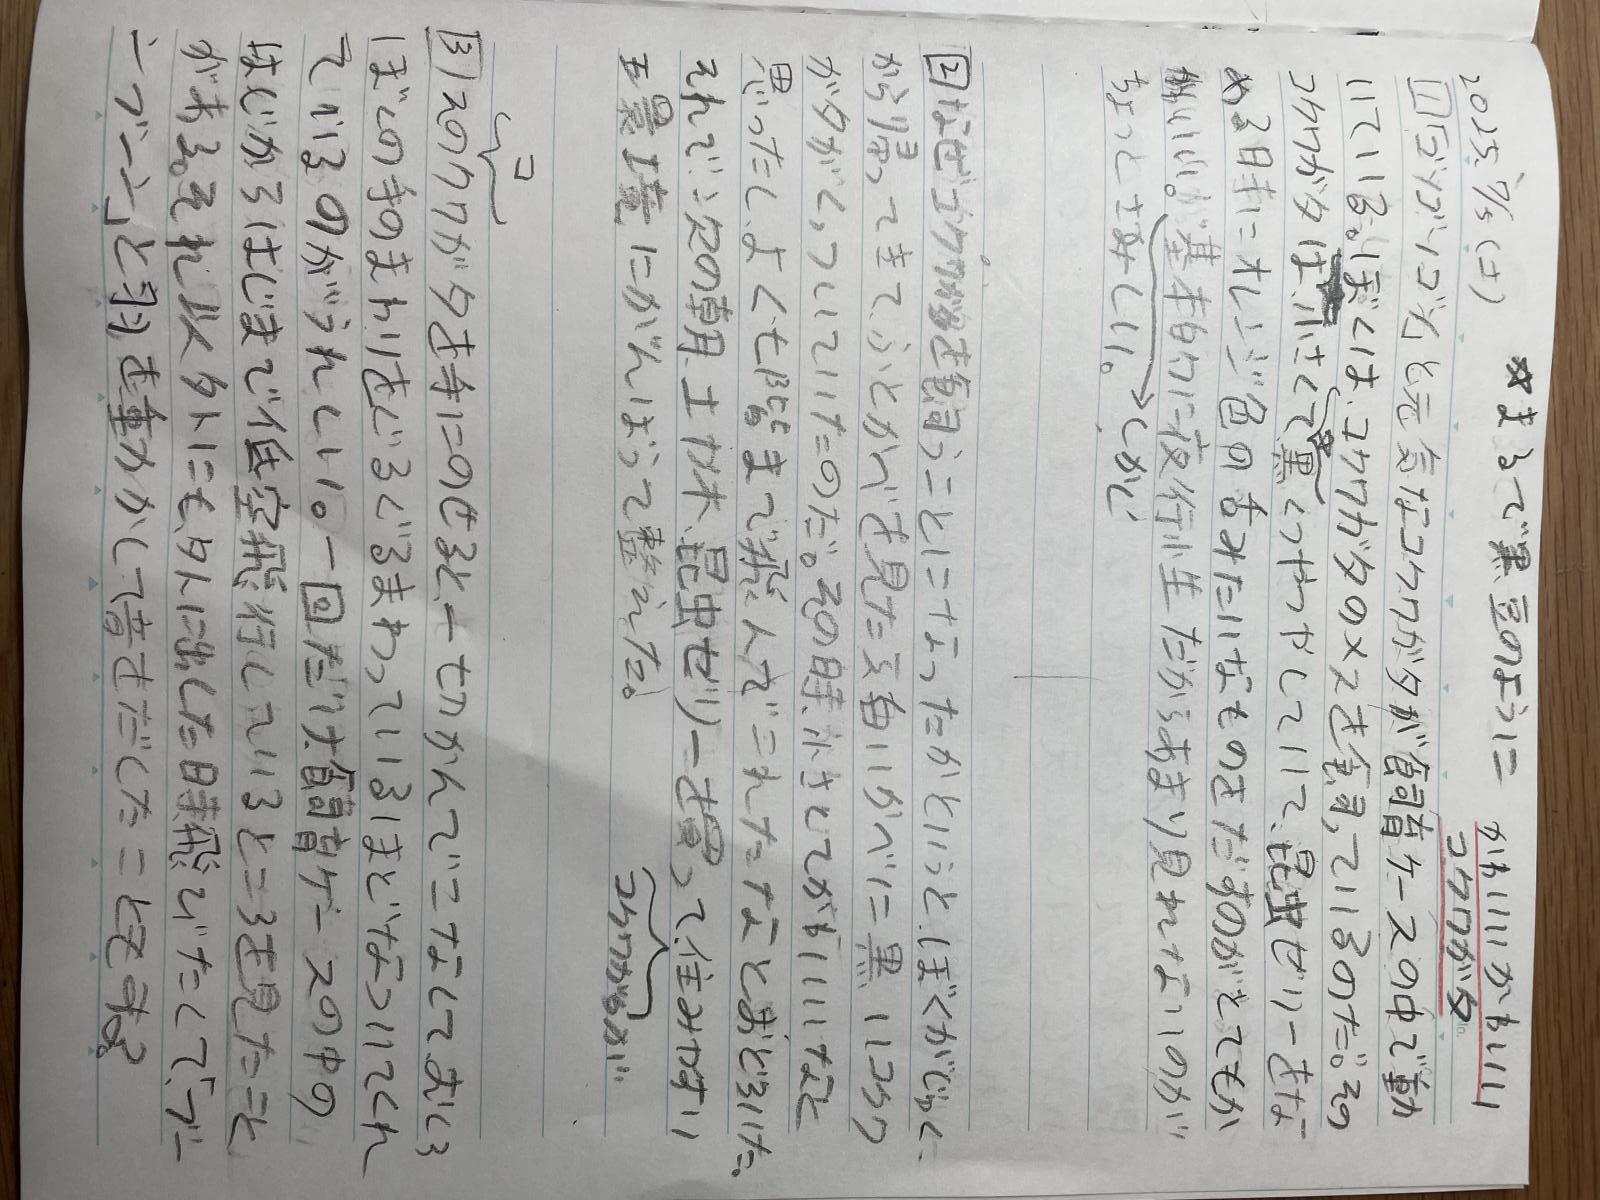 2025.7/5(土)
*まるで黒豆のように
かわいいかわいい
コクワガタ
1 「ゴソゴソゴソ」と元気なコクワガタが飼育ケースの中で動
いている。ぼくは、コクワガタのメスを飼っているのだ。その
コクワガタは、小さくて黒くつやつやしていて、昆虫ゼリーをな
める時にオレンジ色のあみたいなものをだすのがとてもか
わいい。が基本的に夜行性だからあまり見れないのが
ちょっとさみしい。
しかし
2 なぜコクワガタを飼うことになったかというと、ぼくがじゅく
から帰ってきてふとかべを見たら白いかべに黒いコクワ
ガタがくっついていたのだ。その時、小さくてかわいいなと
思ったし、よくも階まで飛んでこれたなとおどろいた。
それで次の朝、土、木、昆虫ゼリーを買って、住みやすい
環境にがんばって整えた。
コクワガタが
3 メスのクワガタを手にのせると一切かんでこなくておく
ぼくの手のまわりをぐるぐるまわっているほどなついてくれ
ているのがうれしい。一回だけ、飼育ケースの中の
はじからはじまで低空飛行しているところを見たこと
がある。それ以外にも、外に出した時飛びたくて、「ブー
ーブーン」と羽を動かして音をだしたこともある。